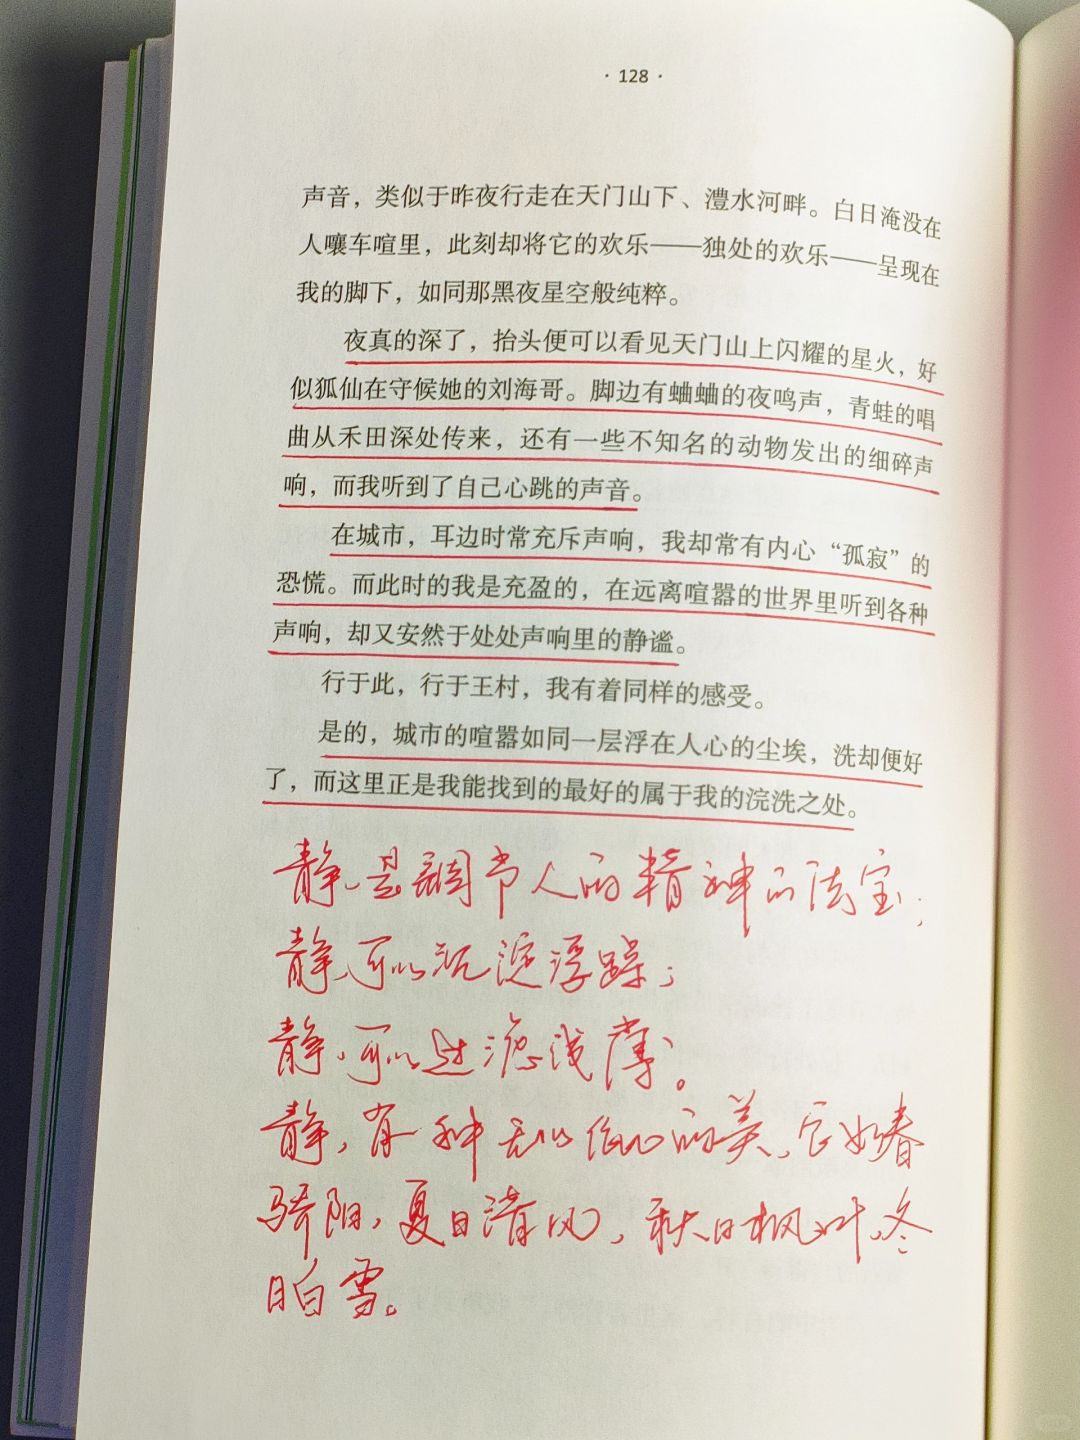 · 128 ·
声音，类似于昨夜行走在天门山下、澧水河畔。白日淹没在
人嚷车喧里，此刻却将它的欢乐——独处的欢乐——呈现在
我的脚下，如同那黑夜星空般纯粹。
夜真的深了，抬头便可以看见天门山上闪耀的星火，好
似狐仙在守候她的刘海哥。脚边有蛐蛐的夜鸣声，青蛙的唱
曲从禾田深处传来，还有一些不知名的动物发出的细碎声
响，而我听到了自己心跳的声音。
在城市，耳边时常充斥声响，我却常有内心“孤寂”的
恐慌。而此时的我是充盈的，在远离喧嚣的世界里听到各种
声响，却又安然于处处声响里的静谧。
行于此，行于王村，我有着同样的感受。
是的，城市的喧嚣如同一层浮在人心的尘埃，洗却便好
了，而这里正是我能找到的最好的属于我的浣洗之处。
静，是调节人的精神的法宝；
静，可以沉淀浮躁；
静，可以过滤浅薄。
静，有种无以伦比的美，它如春
骄阳，夏日清风，秋日枫叶，冬
日白雪。